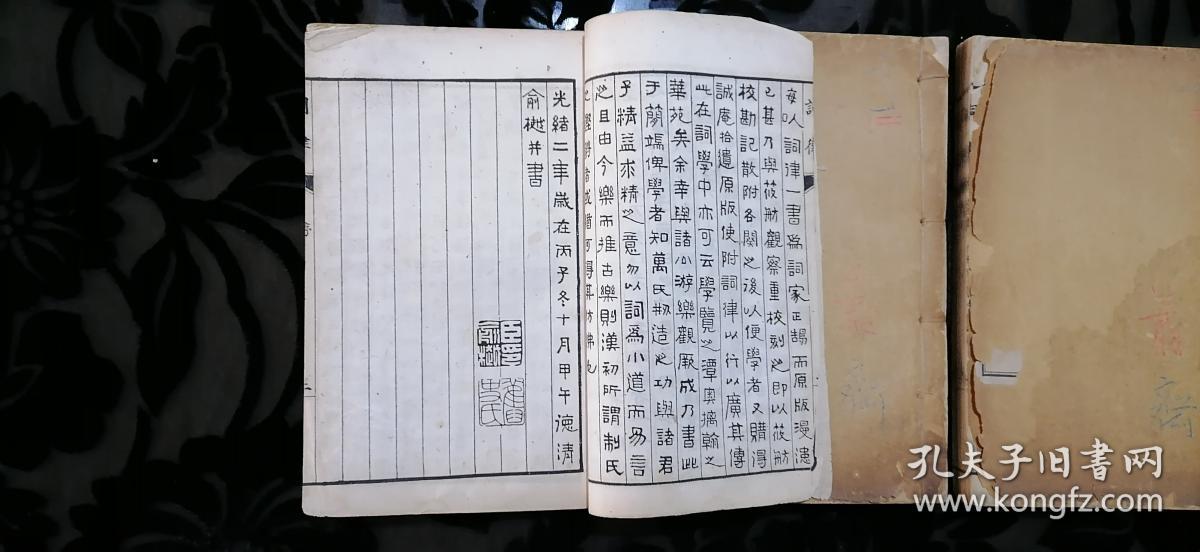 每以詞律一書為詞家正鵠而原版漫漶
已甚乃與筱舫觀察重校刻之即以筱舫
校勘記散附各闋之後以便學者又購得
誠庵拾遺原版使附詞律以行以廣其傳
此在詞學中亦可云學覽之潭奧摛翰之
華苑矣余幸與諸公游樂觀厥成乃書此
于簡端俾學者知萬氏刱造之功與諸君
子精益求精之意勿以詞為小道而易言
之且由今樂而推古樂則漢初所謂制氏
之鏗鏘者或猶可得其彷彿也
光緒二年歲在丙子冬十月甲午德清
俞樾并書
孔夫子旧书网
www.kongfz.com